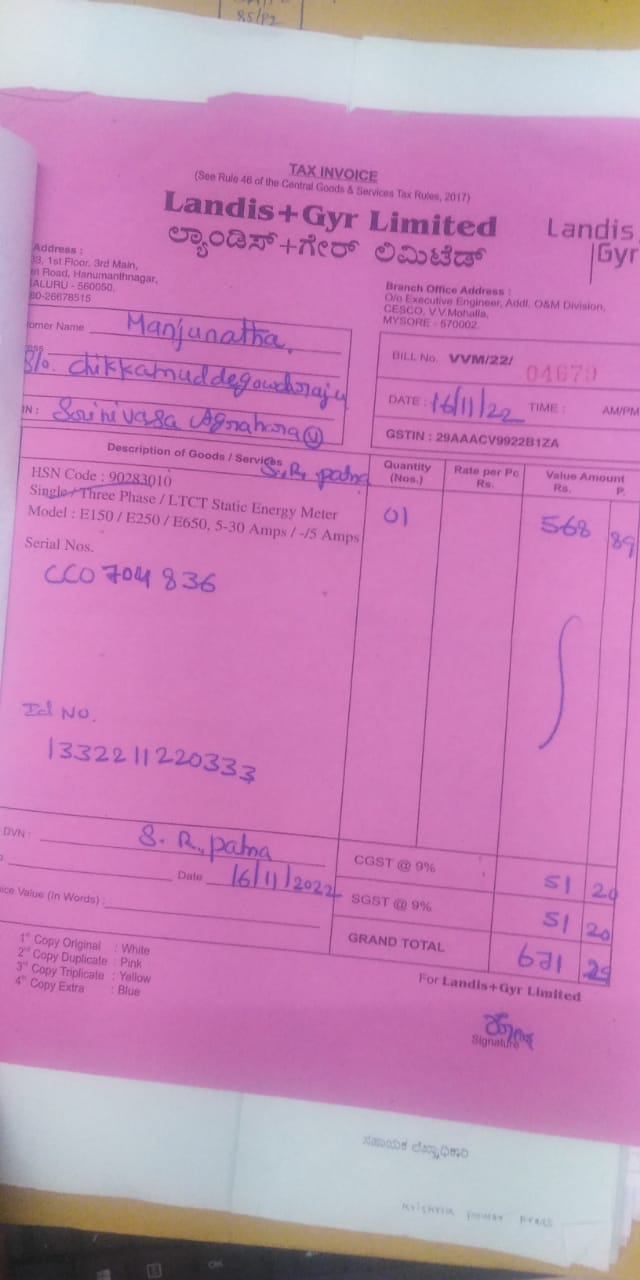 85/P2
TAX INVOICE
(See Rule 46 of the Central Goods & Services Tax Rules, 2017)
Landis+Gyr Limited
ಲ್ಯಾಂಡಿಸ್+ಗೇರ್ ಲಿಮಿಟೆಡ್
Landis
Gyr
Address :
33, 1st Floor, 3rd Main,
Road, Hanumanthnagar,
ALURU - 560050,
80-26678515
Branch Office Address :
O/o Executive Engineer, Addl. O&M Division,
CESCO, V.V.Mohalla,
MYSORE - 570002
omer Name Manjunatha,
ess
S/o. chikkamuddegowdnaraju
IN : Srinivasa Agrahara
S.R. patna
BILL No. VVM/22/ 04679
DATE : 16/11/22 TIME : AM/PM
GSTIN : 29AAACV9922B1ZA
Description of Goods / Services Quantity (Nos.) Rate per Pc Rs. Value Amount Rs. P.
HSN Code : 90283010
Single / Three Phase / LTCT Static Energy Meter
Model : E150 / E250 / E650, 5-30 Amps / -/5 Amps 01 568 89
Serial Nos.
CC0704836
Id No.
1332211220333
DVN : S. R. patna
Date 16/11/2022
ice Value (In Words) :
CGST @ 9% 51 20
SGST @ 9% 51 20
GRAND TOTAL 671 29
1st Copy Original : White
2nd Copy Duplicate : Pink
3rd Copy Triplicate : Yellow
4th Copy Extra : Blue
For Landis+Gyr Limited
Signature
ಸಹಾಯಕ ಲೆಕ್ಕಾಧಿಕಾರಿ
krishna power press